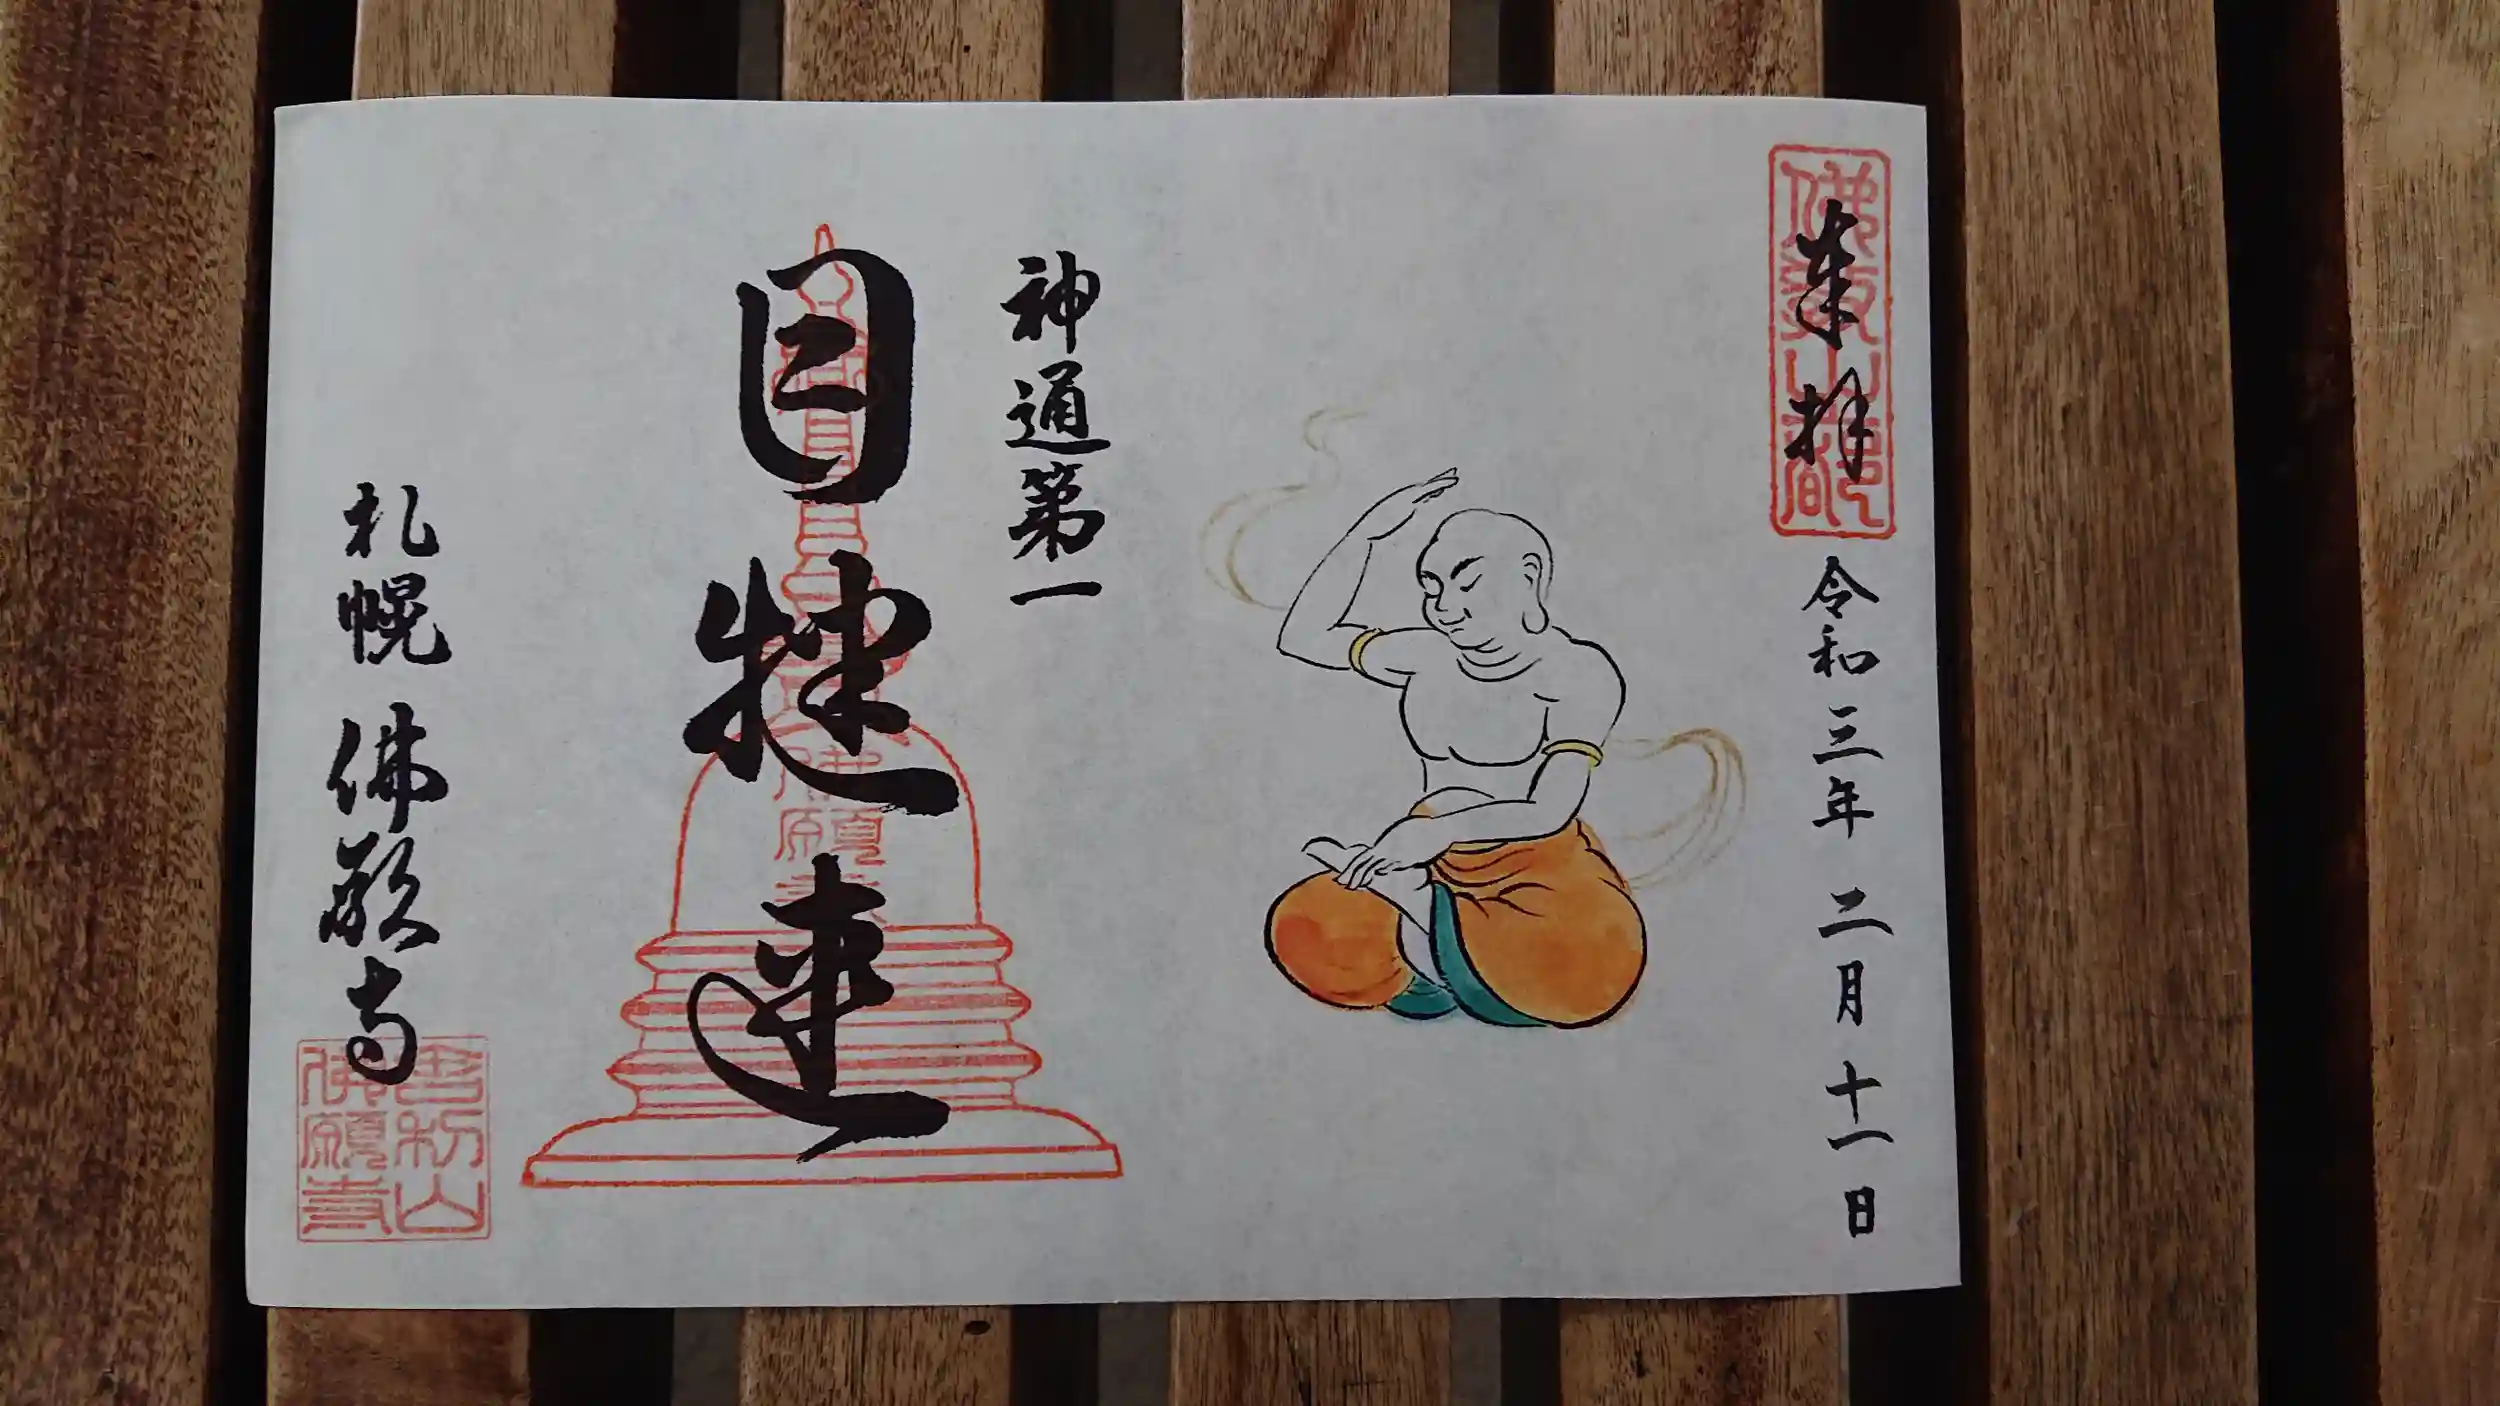 奉拝
令和三年 二月 十一日
神通第一
目犍連
佛願
札幌 佛願寺
舎利山
佛願寺